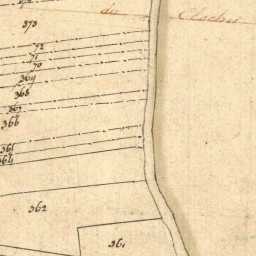 du Clocher
373
72
71
70
369
368
367
366
365
364
362
361